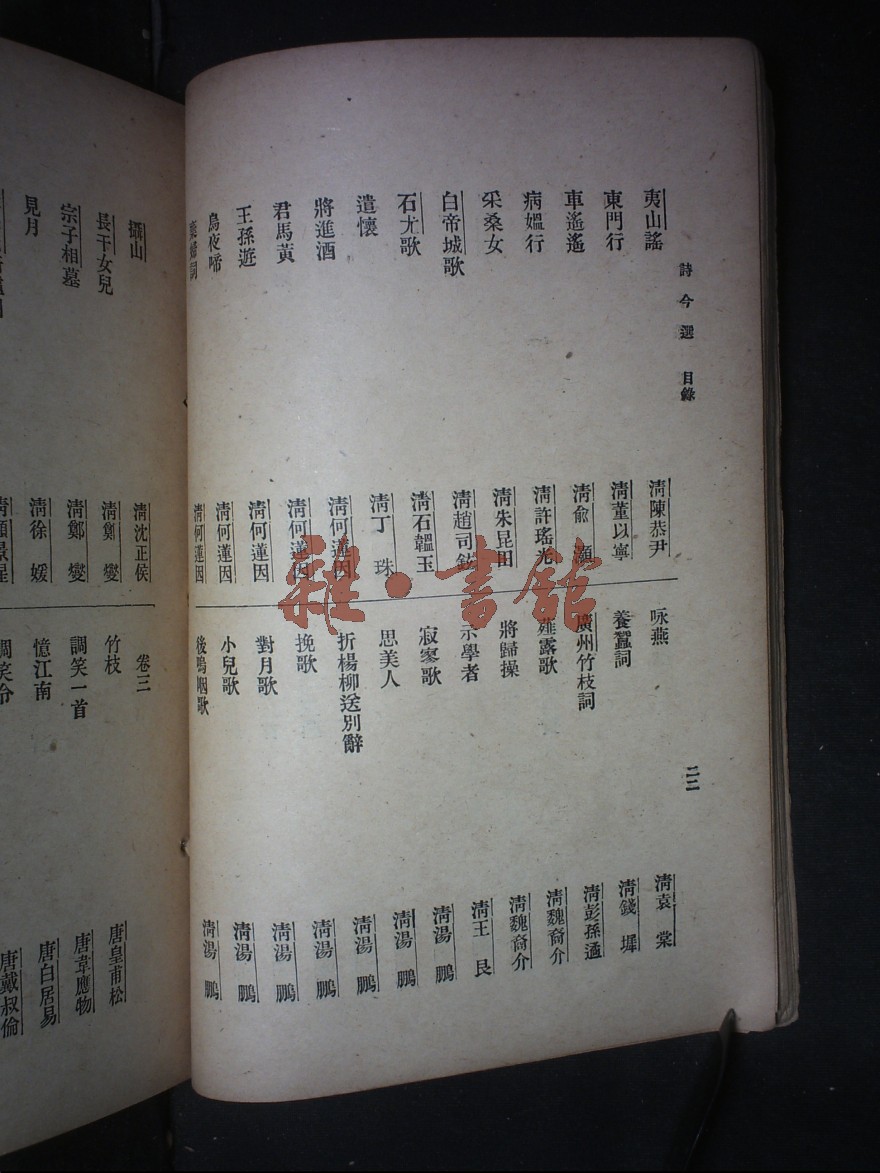 詩今選 目錄
二二
夷山謠 清陳恭尹
東門行 清董以寧
車遙遙 清俞灝
病媼行 清許瑤光
采桑女 清朱昆田
白帝城歌 清趙司鉉
石尤歌 清石韞玉
遣懷 清丁珠
將進酒 清何蓮因
君馬黃 清何蓮因
王孫遊 清何蓮因
烏夜啼 清何蓮因
婦詞 清何蓮因
咏燕 清袁棠
養蠶詞 清錢墀
廣州竹枝詞 清彭孫遹
薤露歌 清魏裔介
將歸操 清魏裔介
示學者 清王艮
寂寥歌 清湯鵬
思美人 清湯鵬
折楊柳送別辭 清湯鵬
挽歌 清湯鵬
對月歌 清湯鵬
小兒歌 清湯鵬
後鳴咽歌 清湯鵬
攝山 清沈正侯
長干女兒 清鄭燮
宗子相墓 清鄭燮
見月 清徐媛
清顧景星
卷三
竹枝 唐皇甫松
調笑一首 唐韋應物
憶江南 唐白居易
調笑令 唐戴叔倫
雜·書館